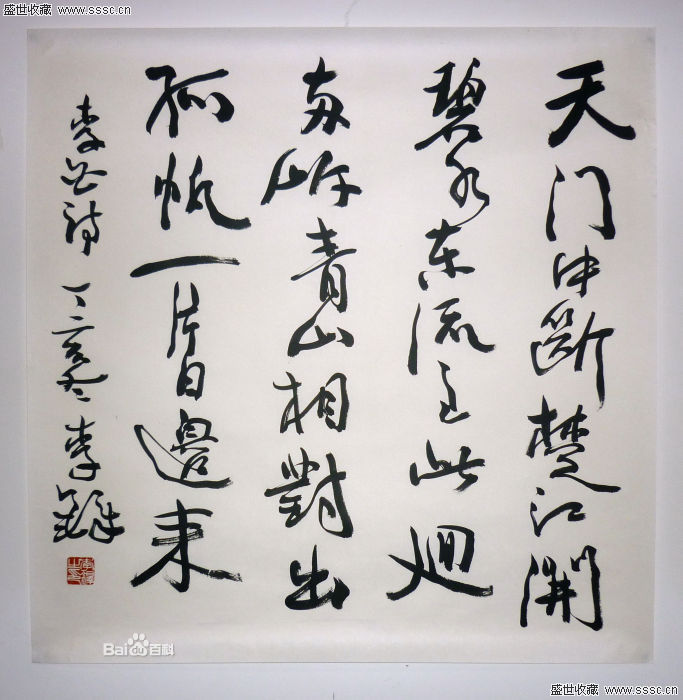 盛世收藏 www.sssc.cn
盛世收藏 www.sssc.cn
天门中斷楚江開
碧水东流至此廻
两岸青山相對出
孤帆一片日邊来
李白诗 李鐸
Bai百科
盛世收藏 www.sssc.cn